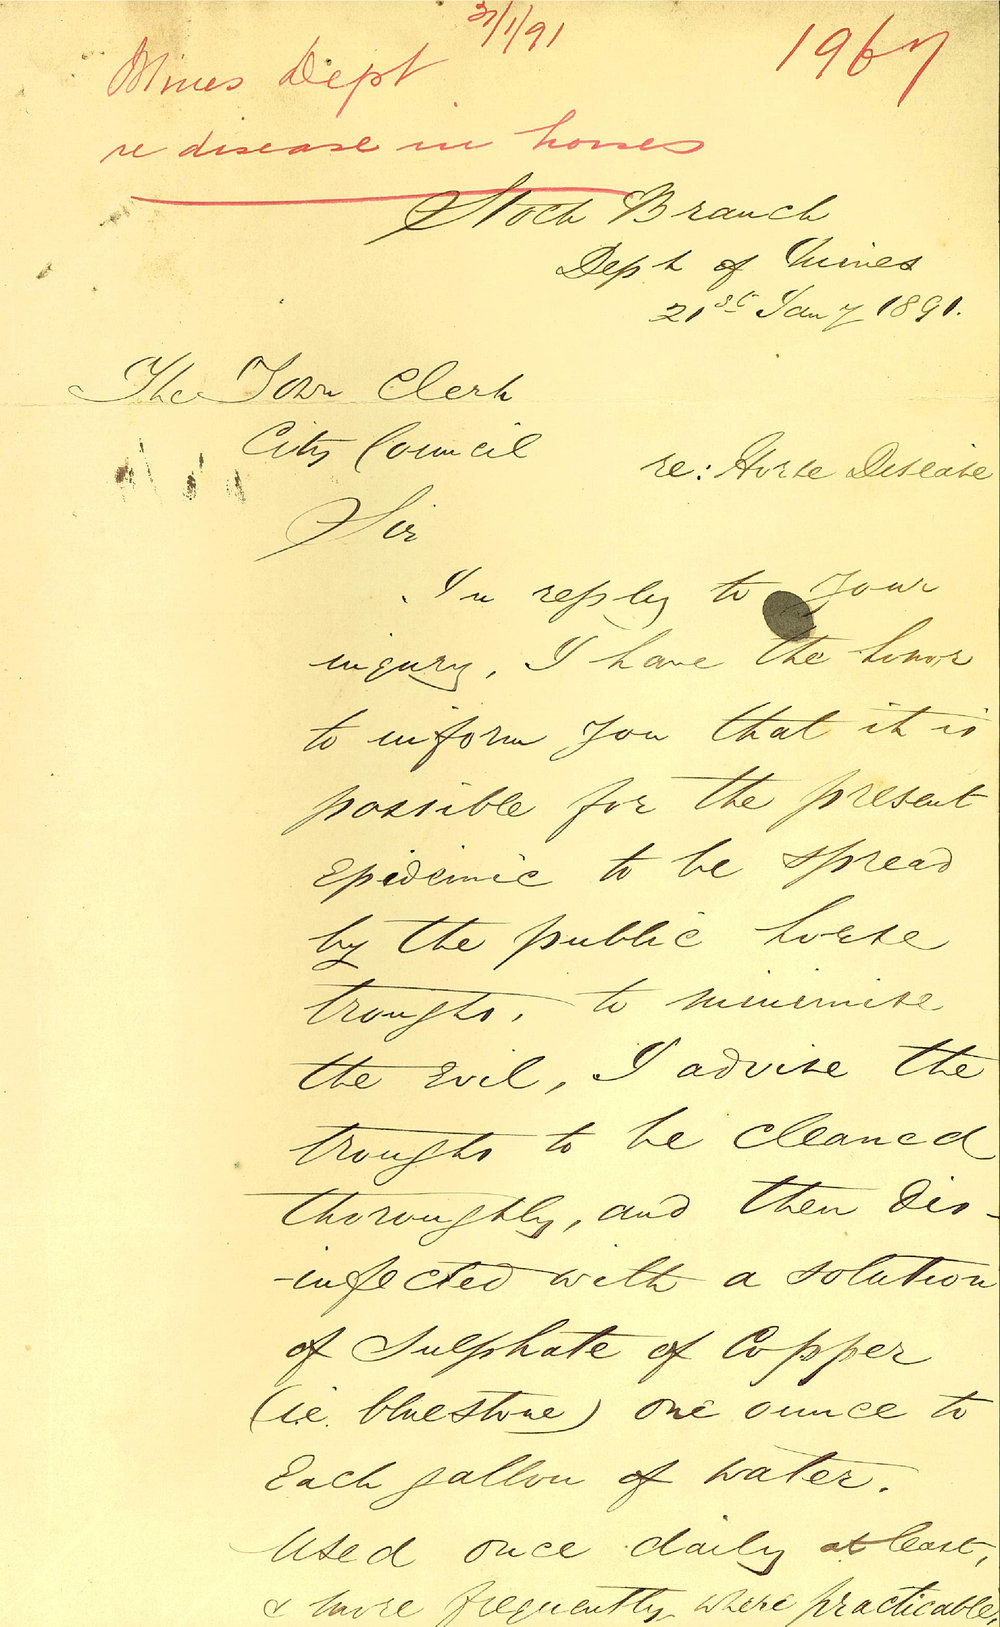 31/1/91
1967
Mines Dept
re disease in horses
Stock Branch
Dept of Mines
21st Jany 1891.
The Town Clerk
City Council
re: Horse Disease
Sir
In reply to your
inqury, I have the honor
to inform you that it is
possible for the present
Epidemic to be spread
by the public horse
troughs. to minimise
the Evil, I advise the
troughs to be cleaned
thoroughly, and then dis-
-infected with a solution
of Sulphate of Copper
(i.e. bluestone) one ounce to
Each gallon of water.
Used once daily at least,
& more frequently where practicable,